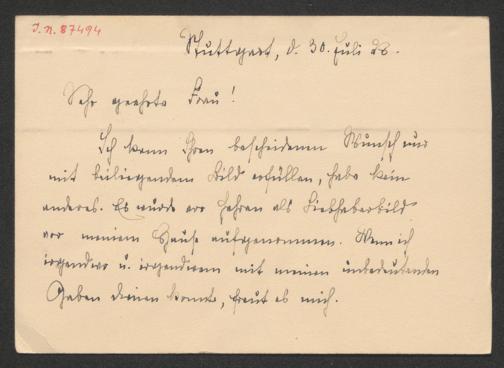 I.N. 87494
Stuttgart, d. 30. Juli 28.
Sehr geehrte Frau!
Ich kann Ihren bescheidenen Wunsch nur
mit beiliegendem Bild erfüllen, habe kein
anderes. Es wurde vor Jahren als Liebhaberbild
vor meinem Hause aufgenommen. Wenn ich
irgendwo u. irgendwem mit meinen unbedeutenden
Gaben dienen konnte, freut es mich.